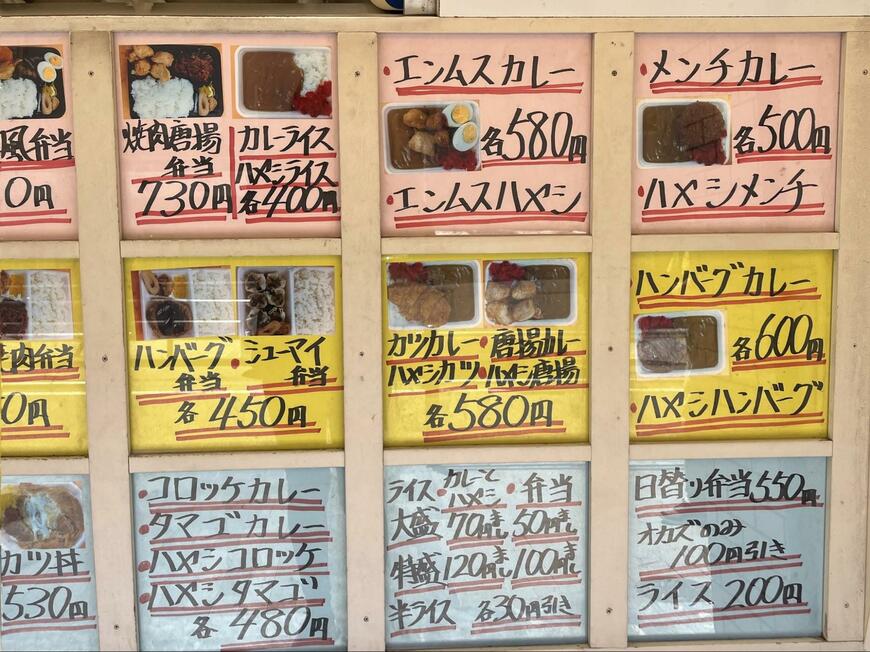 風弁当
0円
焼肉唐揚
弁当
730円
カレーライス
ハヤシライス
各400円
・エンムスカレー
各580円
・エンムスハヤシ
・メンチカレー
各500円
・ハヤシメンチ
肉弁当
0円
ハンバーグ・シューマイ
弁当 弁当
各450円
カツカレー・唐揚カレー
ハヤシカツ・ハヤシ唐揚
各580円
・ハンバーグカレー
各600円
・ハヤシハンバーグ
カツ丼
530円
・コロッケカレー
・タマゴカレー
・ハヤシコロッケ
・ハヤシタマゴ
各480円
ライス・カレーとハヤシ・弁当
大盛 70円まし 50円まし
特盛 120円まし 100円まし
半ライス 各30円引き
日替り弁当550円
オカズのみ
100円引き
ライス 200円